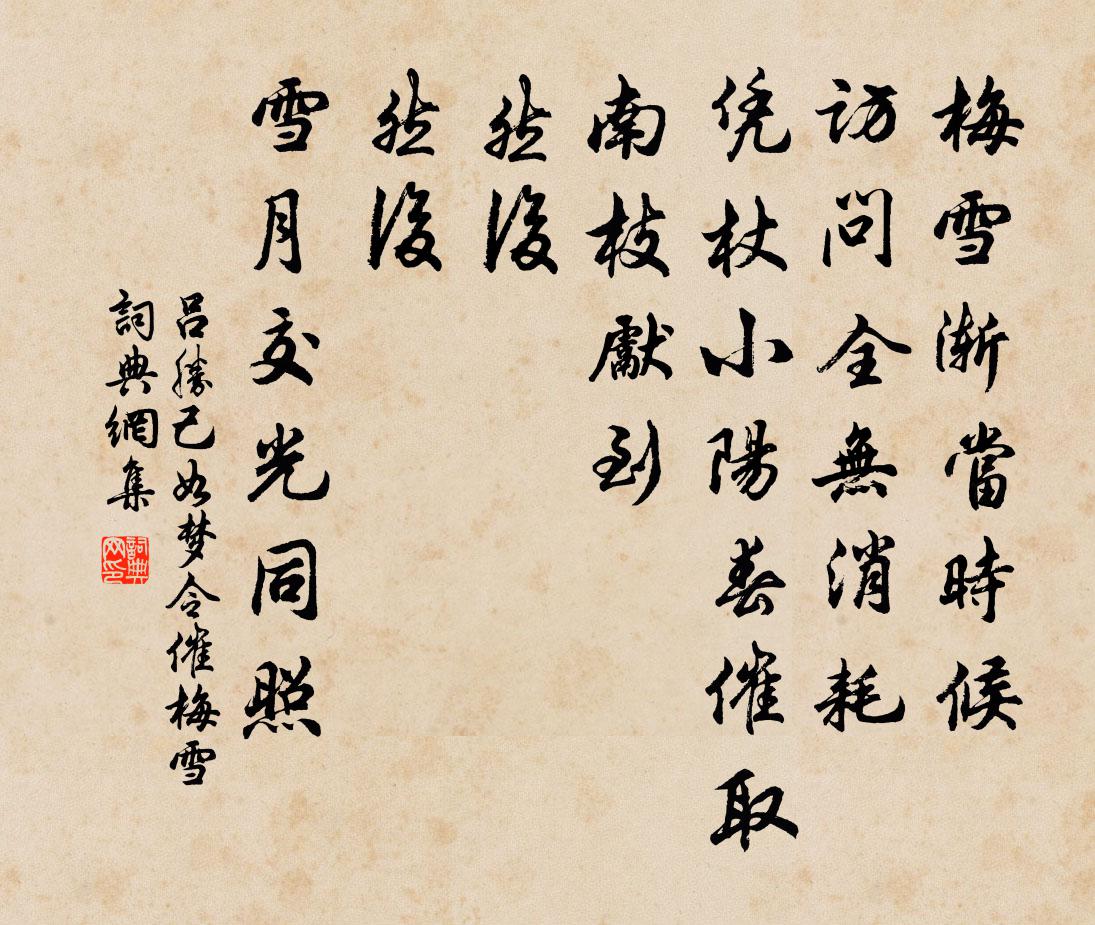 梅雪漸當時候
訪問全無消耗
凭杖小陽春催取
南枝獻到
然後
然後
雪月交光同照
呂勝己如梦令催梅雪
詞典網集
詞典網印